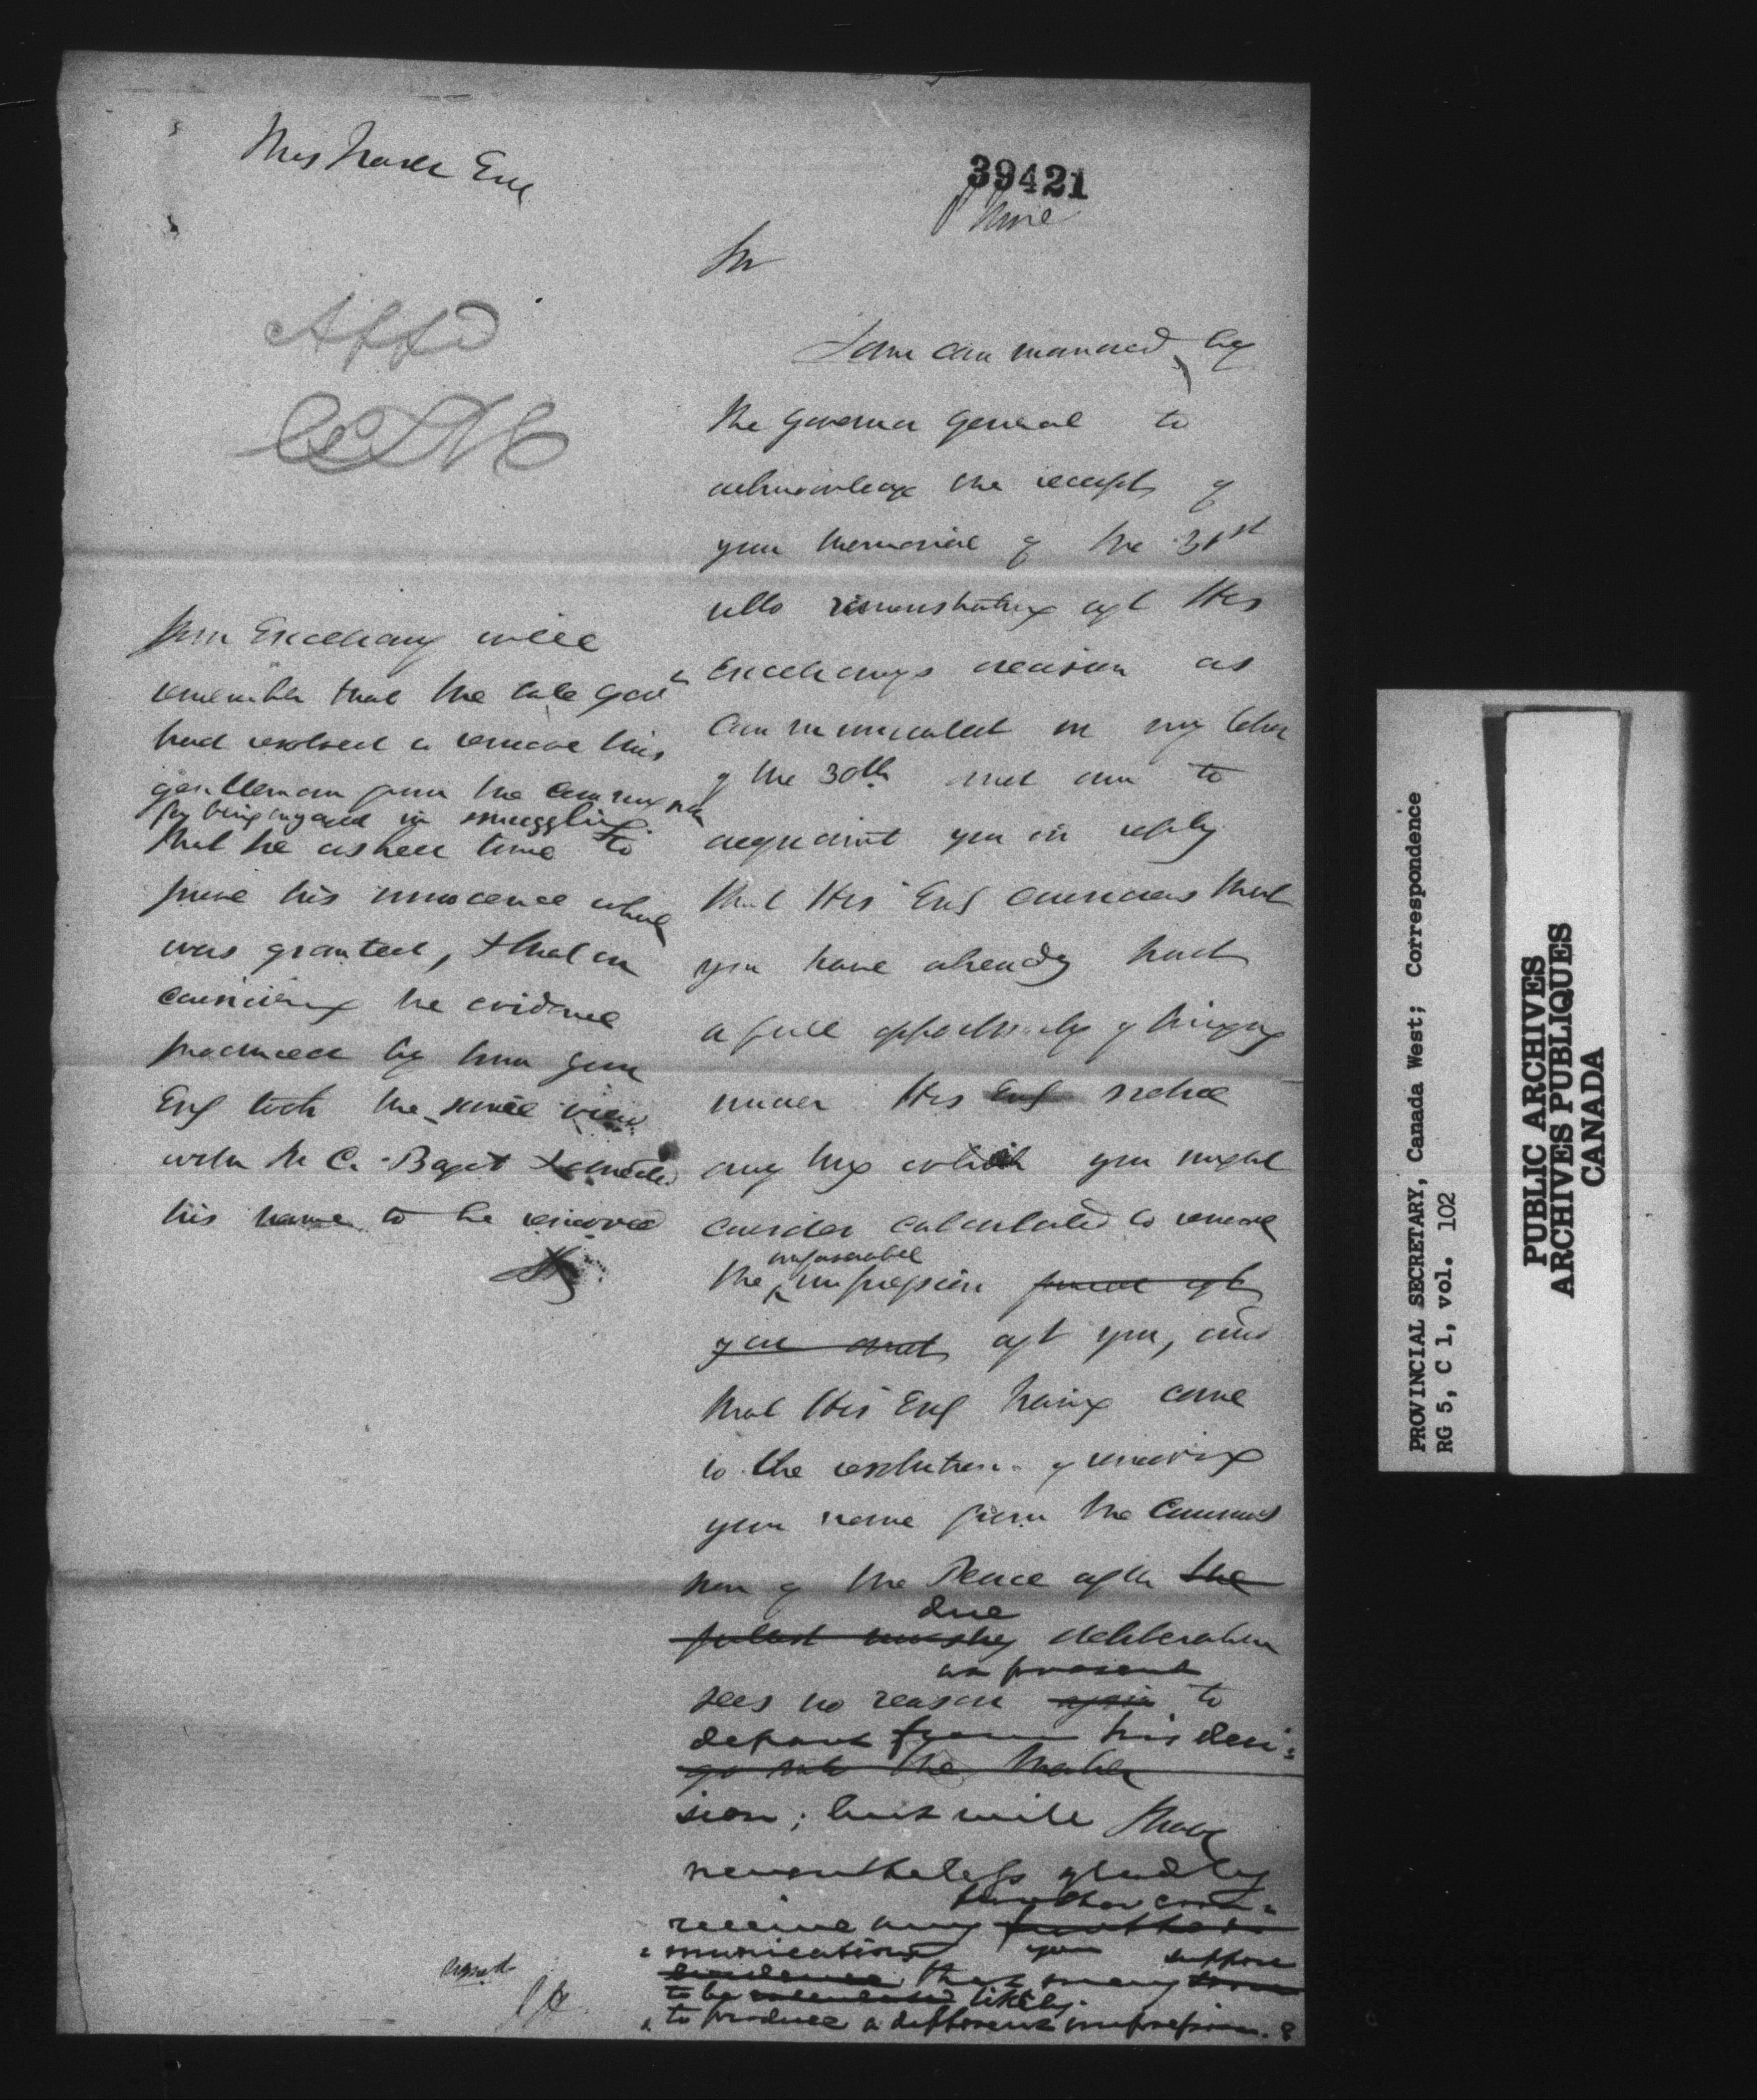 39421
June
Sir
I am commanded by
the Governor General to
acknowledge the receipt of
your Memorial of the 31st
ulto remonstrating agt His
Excellencys decision as
communicated in my letter
of the 30th and am to
acquaint you in reply
that His Exy considers that
you have already had
a full opportunity of bringing
under His Exy notice
any thg which you might
consider calculated to remove
unfavorable
the impression formed agt
you and agt you, and
that His Exy having come
to the resolution of removing
your name from the Commis
sion of the Peace after the
due
fullest deliberation
at present
sees no reason again to
depart from his deci=
go into the matter
sion; but will
nevertheless gladly
further com=
receive any further
=munication you suppose
evidence that may
to be calculated likely
to produce a different impression.
Your Excellency will
remember that the late Govr
had resolved to remove this
gentleman from the Commission
for being engaged in smuggling
that he asked time to
prove his innocence which
was granted, & that on
considering the evidence
produced by him your
Exy took the same view
with Sir C. Bagot & directed
his name to be removed
PROVINCIAL SECRETARY, Canada West; Correspondence
RG 5, C 1, vol. 102
PUBLIC ARCHIVES
ARCHIVES PUBLIQUES
CANADA